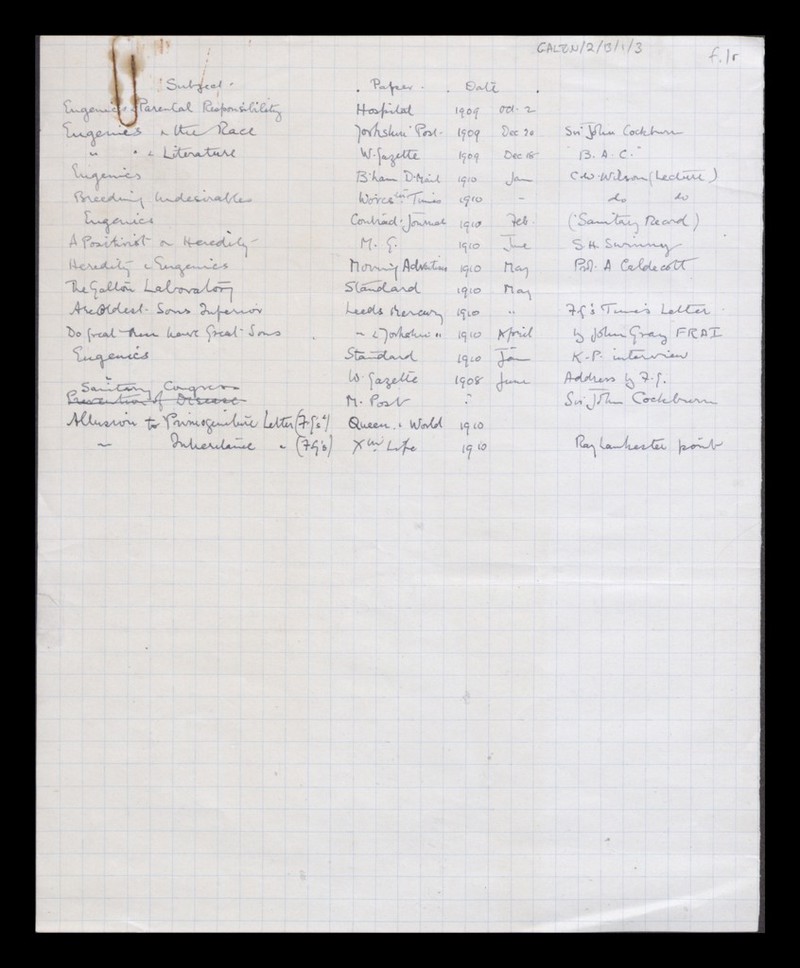 GALTON/2/13/1/3
f.1r
Subject - . Paper - . Date .
Eugenics & Parental Responsibility Hospital 1909 Oct. 2
Eugenics & the Race Yorkshire Post - 1909 Dec 20 Sir John Cockburn
" " & Literature W. Gazette 1909 Dec 18 "B.A.C."
Eugenics B'ham D. Mail 1910 Jan C.W. Wilson (Lecture)
Breeding Undesirables Worcs Times 1910 - do do
Eugenics Contract. Journal 1910 Feb. ('Sanitary Record')
A Positivist on Heredity - M. G. 1910 June S. H. Swinny
Heredity & Eugenics Morning Advertiser 1910 May Prof. A Caldecott
The Galton Laboratory Standard 1910 May
Are Oldest Sons Inferior Leeds Mercury 1910 " F.G's Times Letter -
Do great Men have Great Sons . - & Yorkshire " 1910 April by John Gray FRAI
Eugenics Standard 1910 Jan K.P. interview
" W. Gazette 1908 June Address by F.G.
Sanitary Congress
Prevention of Disease M. Post ? Sir John Cockburn
Allusion to Primogeniture Letter (F.G's) Queen. & World 1910
~ Inheritance " (F.G's) Xtn Life 1910 Ray Lankester point